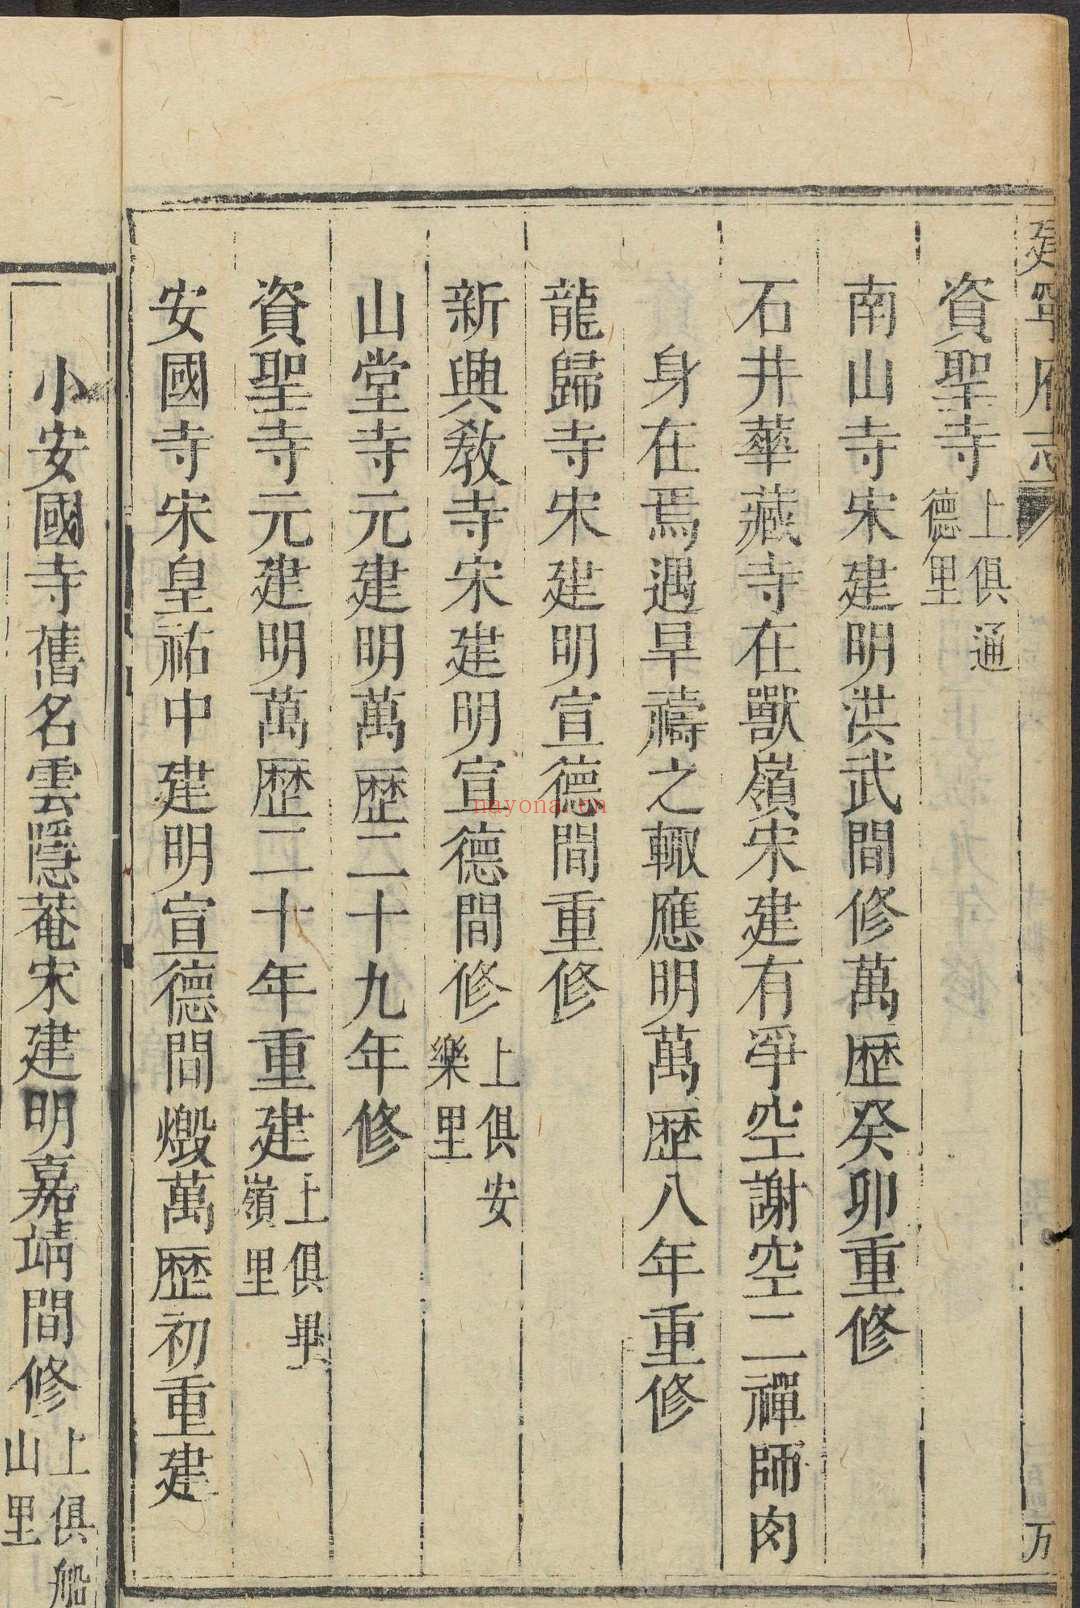 建寧府志
資聖寺上俱通德里
南山寺宋建明洪武間修萬歷癸卯重修
石井華藏寺在獸嶺宋建有爭空謝空二禪師肉
身在焉遇旱禱之輙應明萬歷八年重修
龍歸寺宋建明宣德間重修
新興敎寺宋建明宣德間修上俱安樂里
山堂寺元建明萬歷二十九年修
資聖寺元建明萬歷二十年重建上俱畢嶺里
安國寺宋皇祐中建明宣德間燬萬歷初重建
小安國寺舊名雲隱菴宋建明嘉靖間修上俱船山里
nayona.cn